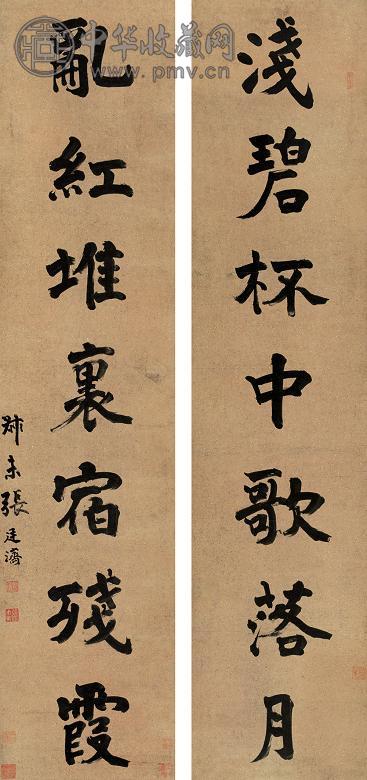 中华收藏网
www.pmv.cn
淺碧杯中歌落月
亂紅堆裏宿殘霞
尗未張廷濟